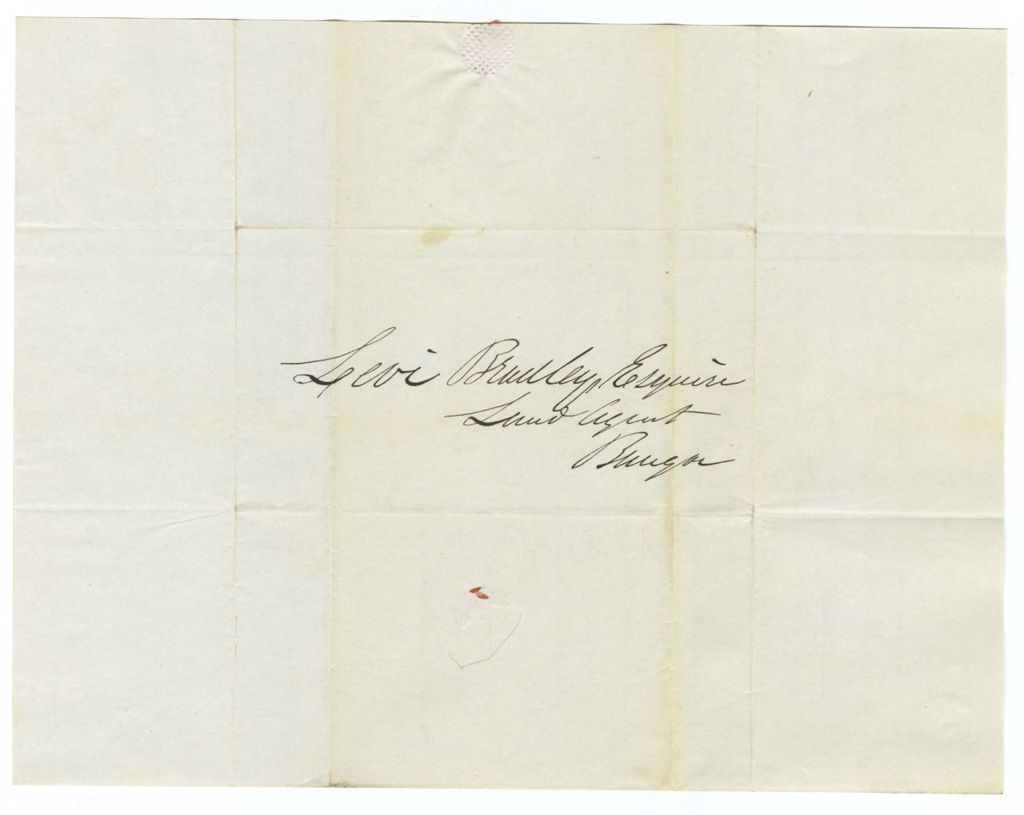 Levi Bradley, Esquire
Land Agent
Bangor